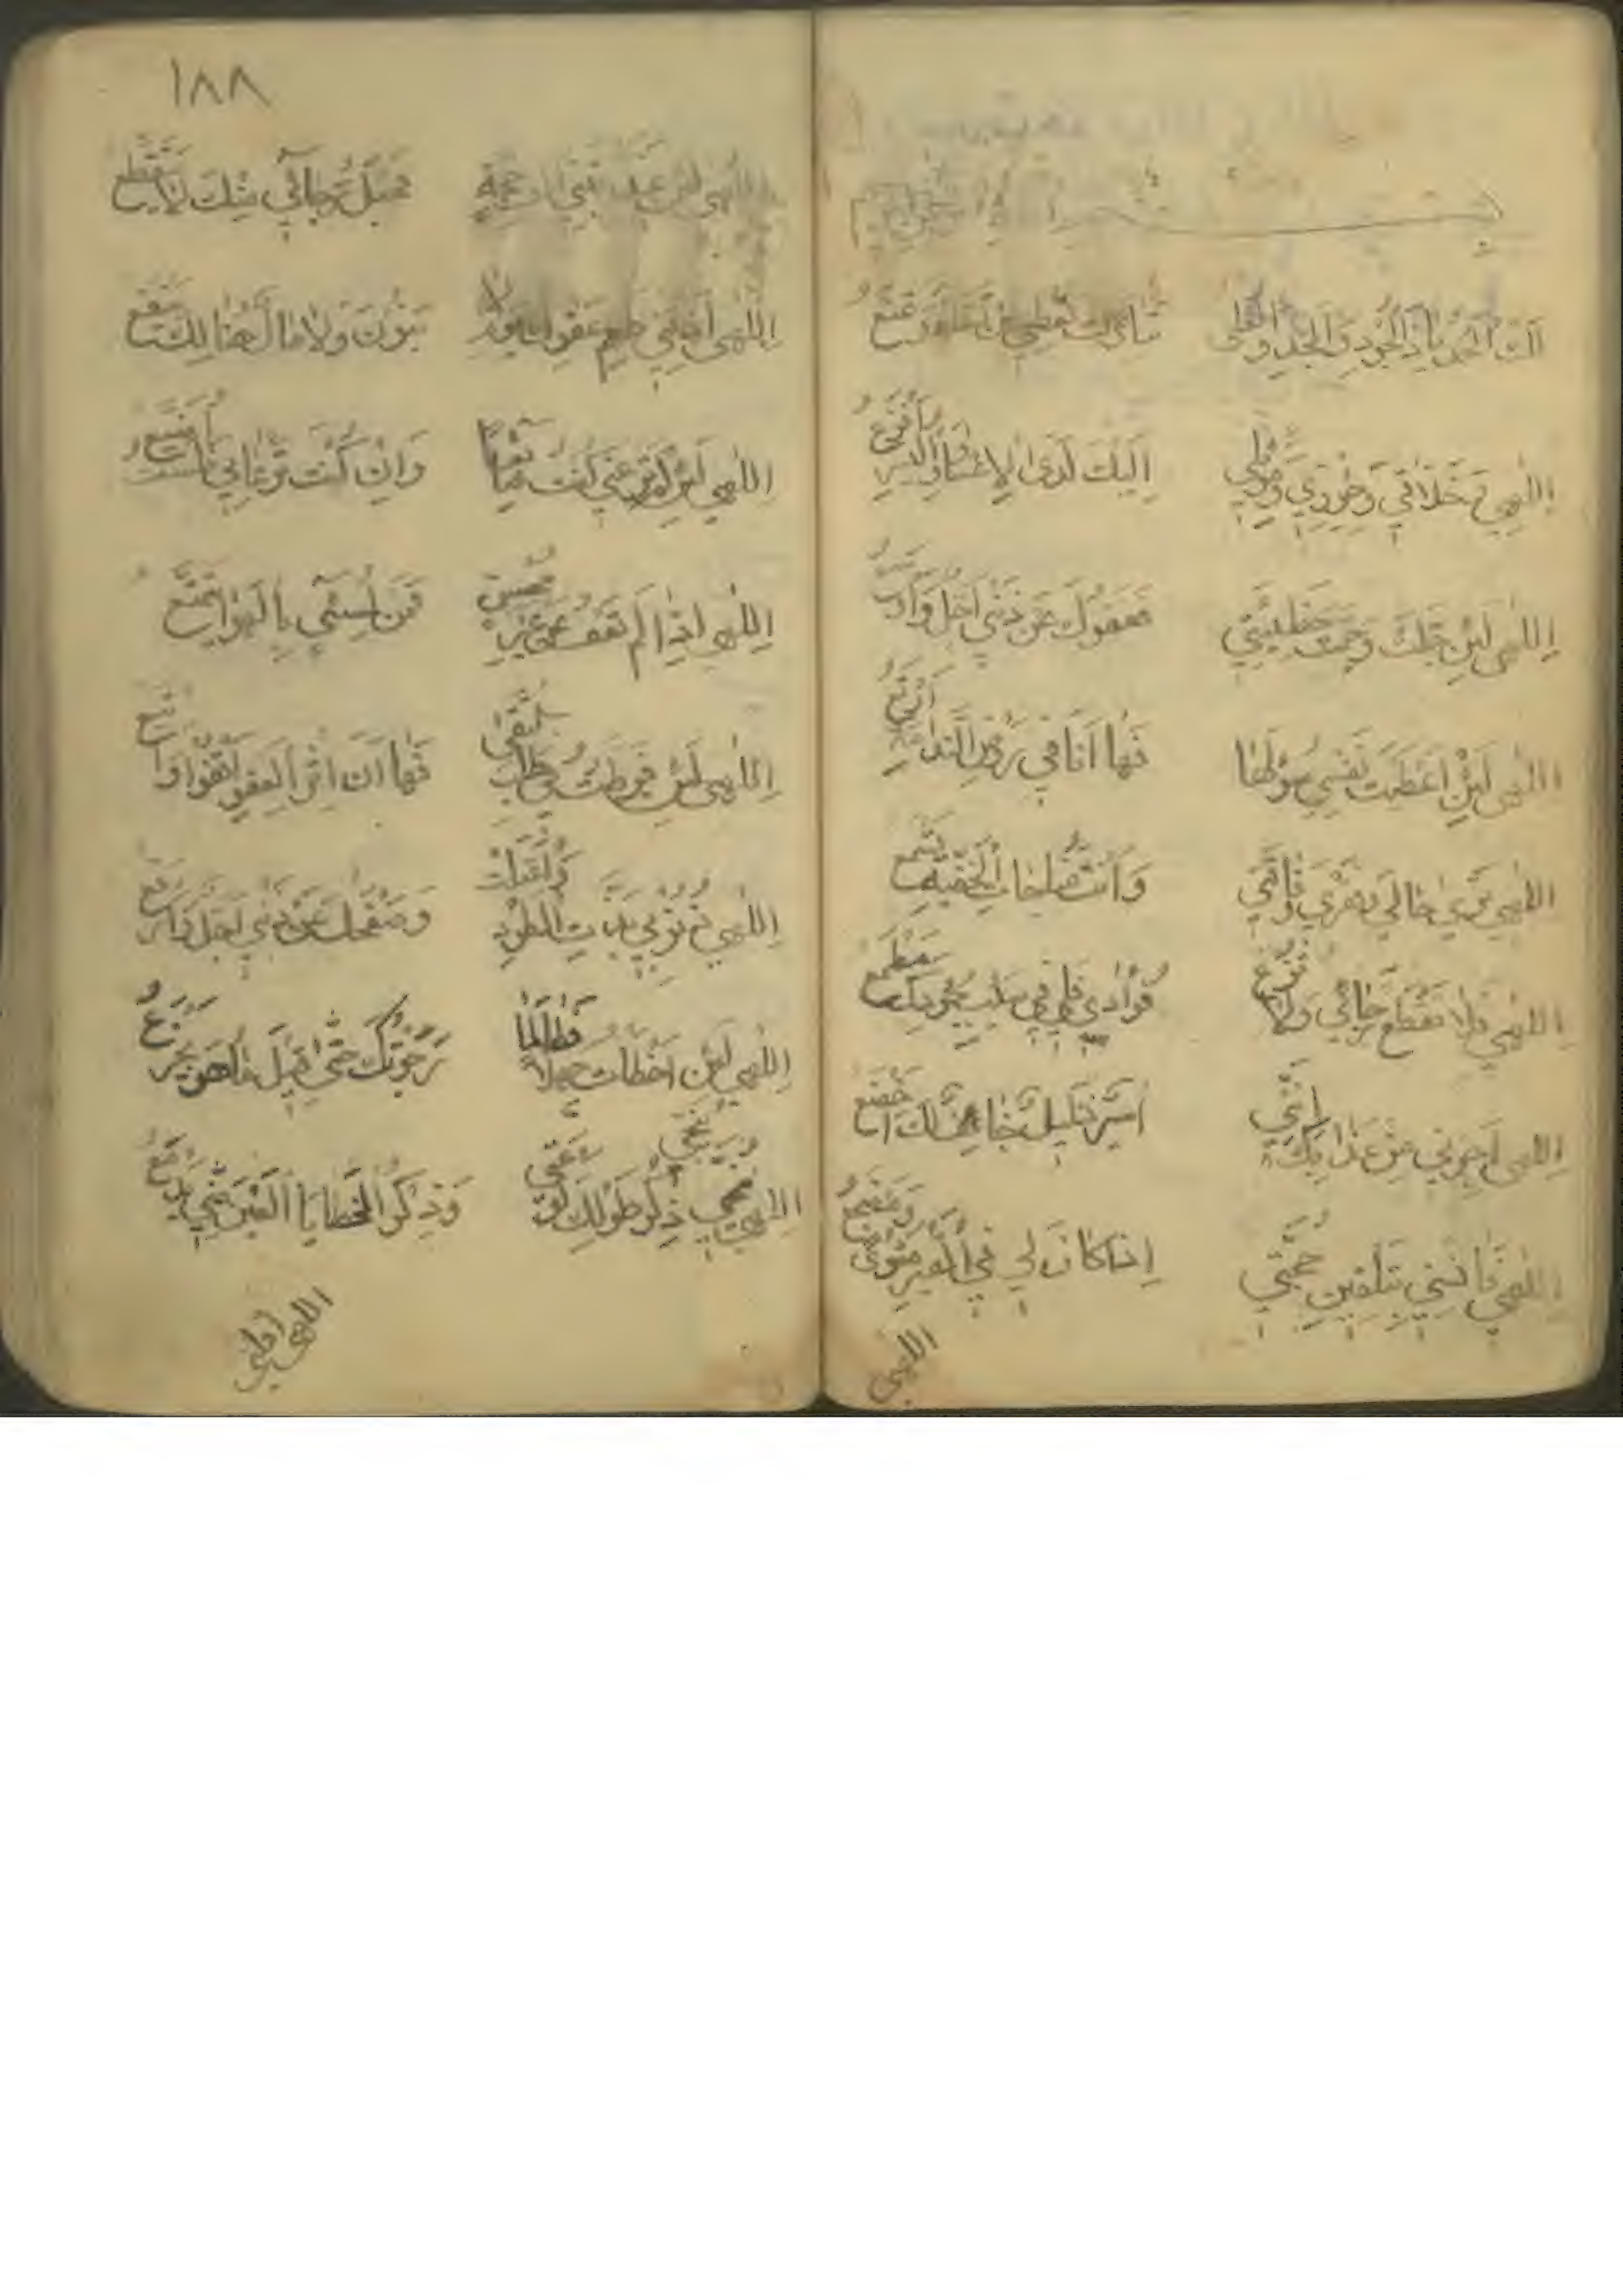 بسم الله الرحمن الرحيم
لك الحمد يا ذا الجود والمجد والعلى تباركت تعطي من تشاء وتمنع
اللهي وخلاقي وحرزي وموئلي اليك لدى الاعسار واليسر افزع
اللهي لئن جلت وجمت خطيئتي فعفوك عن ذنبي اجل واوسع
اللهي لئن اعطيت نفسي سؤلها فها انا في روض الندامة ارتع
اللهي ترى حالي وفقري وفاقتي وانت مناجاتي الخفية تسمع
اللهي فلا تقطع رجائي ولا تزغ فؤادي فلي في سيب جودك مطمع
اللهي اجرني من عذابك انني اسير ذليل خائف لك اخضع
اللهي فانسني بتلقين حجتي اذا كان لي في القبر مثوى ومضجع
اللهي
١٨٨
اللهي لئن عذبتني الف حجة فحبل رجائي منك لا يتقطع
اللهي اذقني طعم عفوك يوم لا بنون ولا مال هنالك ينفع
اللهي لئن لم ترعني كنت ضائعا وان كنت ترعاني فلست اضيع
اللهي اذا لم تعف عن غير محسن فمن لمسيء بالهوى يتمتع
اللهي لئن فرطت في طلب التقى فها انا اثر العفو اقفو واتبع
اللهي ذنوبي بذت الطود واعتلت وصفحك عن ذنبي اجل وارفع
اللهي لئن اخطات جهلا فطالما رجوتك حتى قيل ما هو يجزع
اللهي ينجي ذكر طولك لوعتي وذكر الخطايا العين مني يدمع
اللهي اقلني